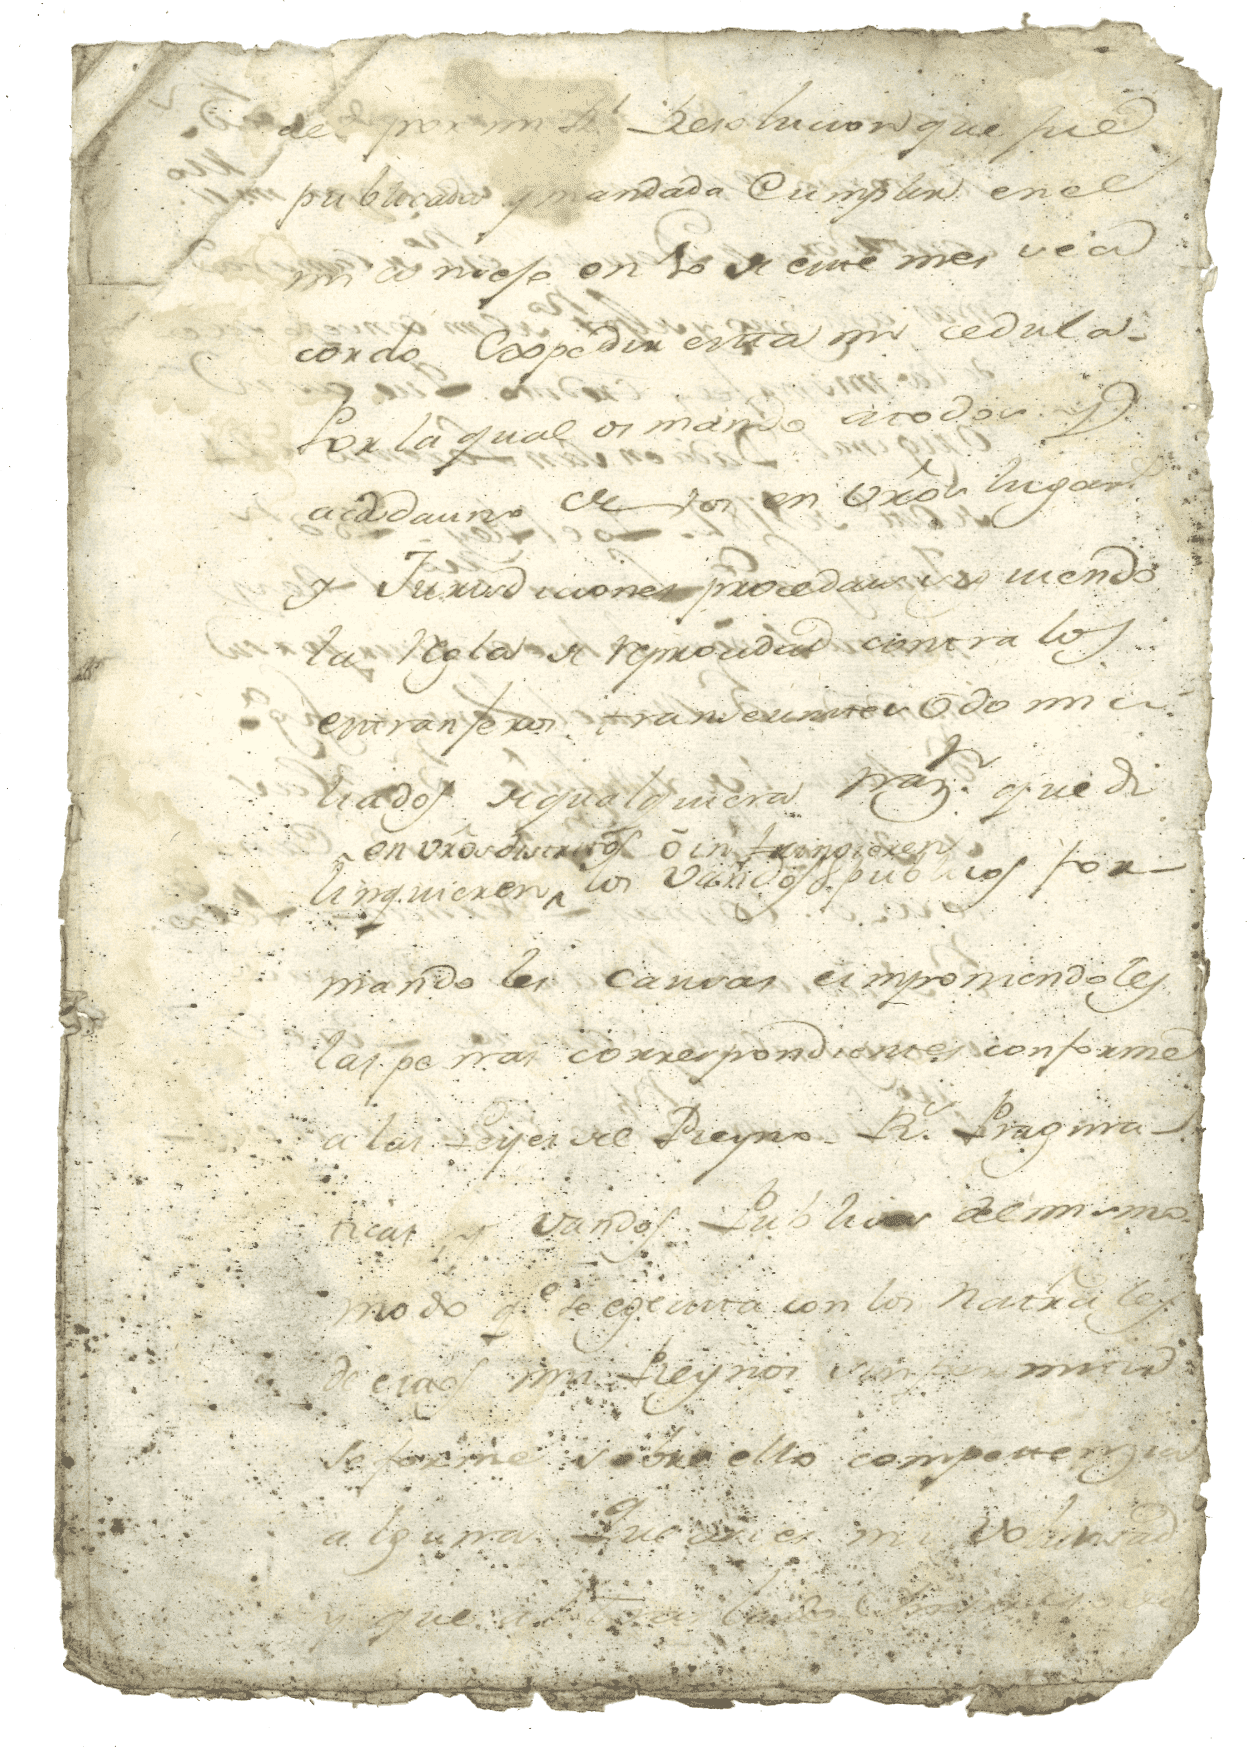 de por mi Rl Resolucion que fue
publicada y mandada Cumplir en el
mi consejo en 10 de este mes se a
cordo Expedir esta mi cedula-
Por la qual os mando atodos y
acadauno de vos en vrōs lugares
y Jurisdiciones procedais siguiendo
la Regla de reprocidad contra los
extranjeros transeuntes o domici-
liados de qualquiera Naz.n que di
en vrōs distritos ō infringieren
linquieren ^ los vandos publicos for-
mando les causas e imponiendoles
las penas correspondientes conforme
a las Leyes del Reyno R.s Pragma-
ticas y vandos Publicos del mismo
modo qe se egecuta con los Natrales
de estos mis Reynos sin permitir
se forme sobre ello competenzia
alguna. Que asi es mi voluntad
y que al traslado impreso de